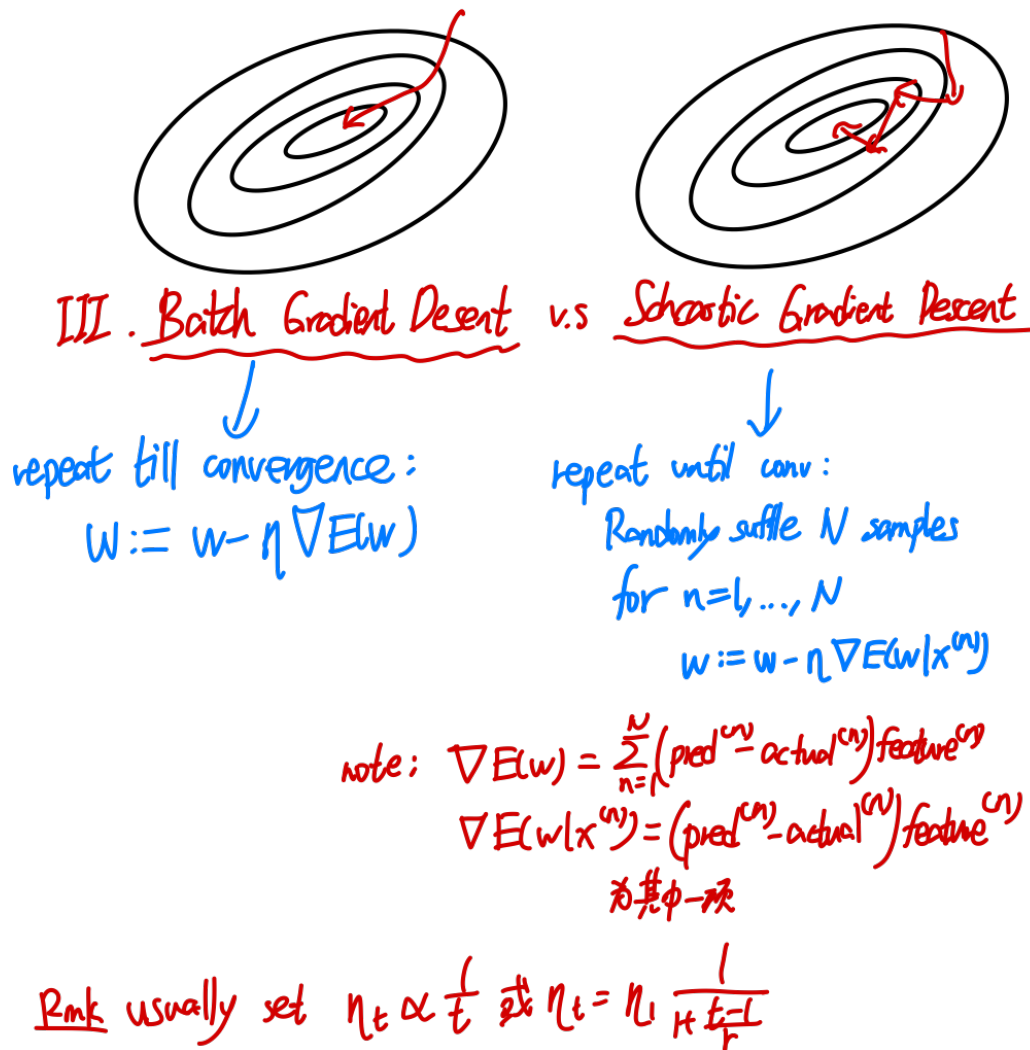 III. Batch Gradient Desent v.s Schcastic Gradient Descent
repeat till convergence:
w := w - η ∇E(w)
repeat until conv:
Randomly suffle N samples
for n=1, ..., N
w := w - η ∇E(w|x⁽ⁿ⁾)
note: ∇E(w) = Σₙ₌₁ᴺ (pred⁽ⁿ⁾ - actual⁽ⁿ⁾) feature⁽ⁿ⁾
∇E(w|x⁽ⁿ⁾) = (pred⁽ⁿ⁾ - actual⁽ⁿ⁾) feature⁽ⁿ⁾
为其中一项
Rmk usually set ηt ∝ 1/t 或 ηt = η1 1/(1+(t-1)/r)